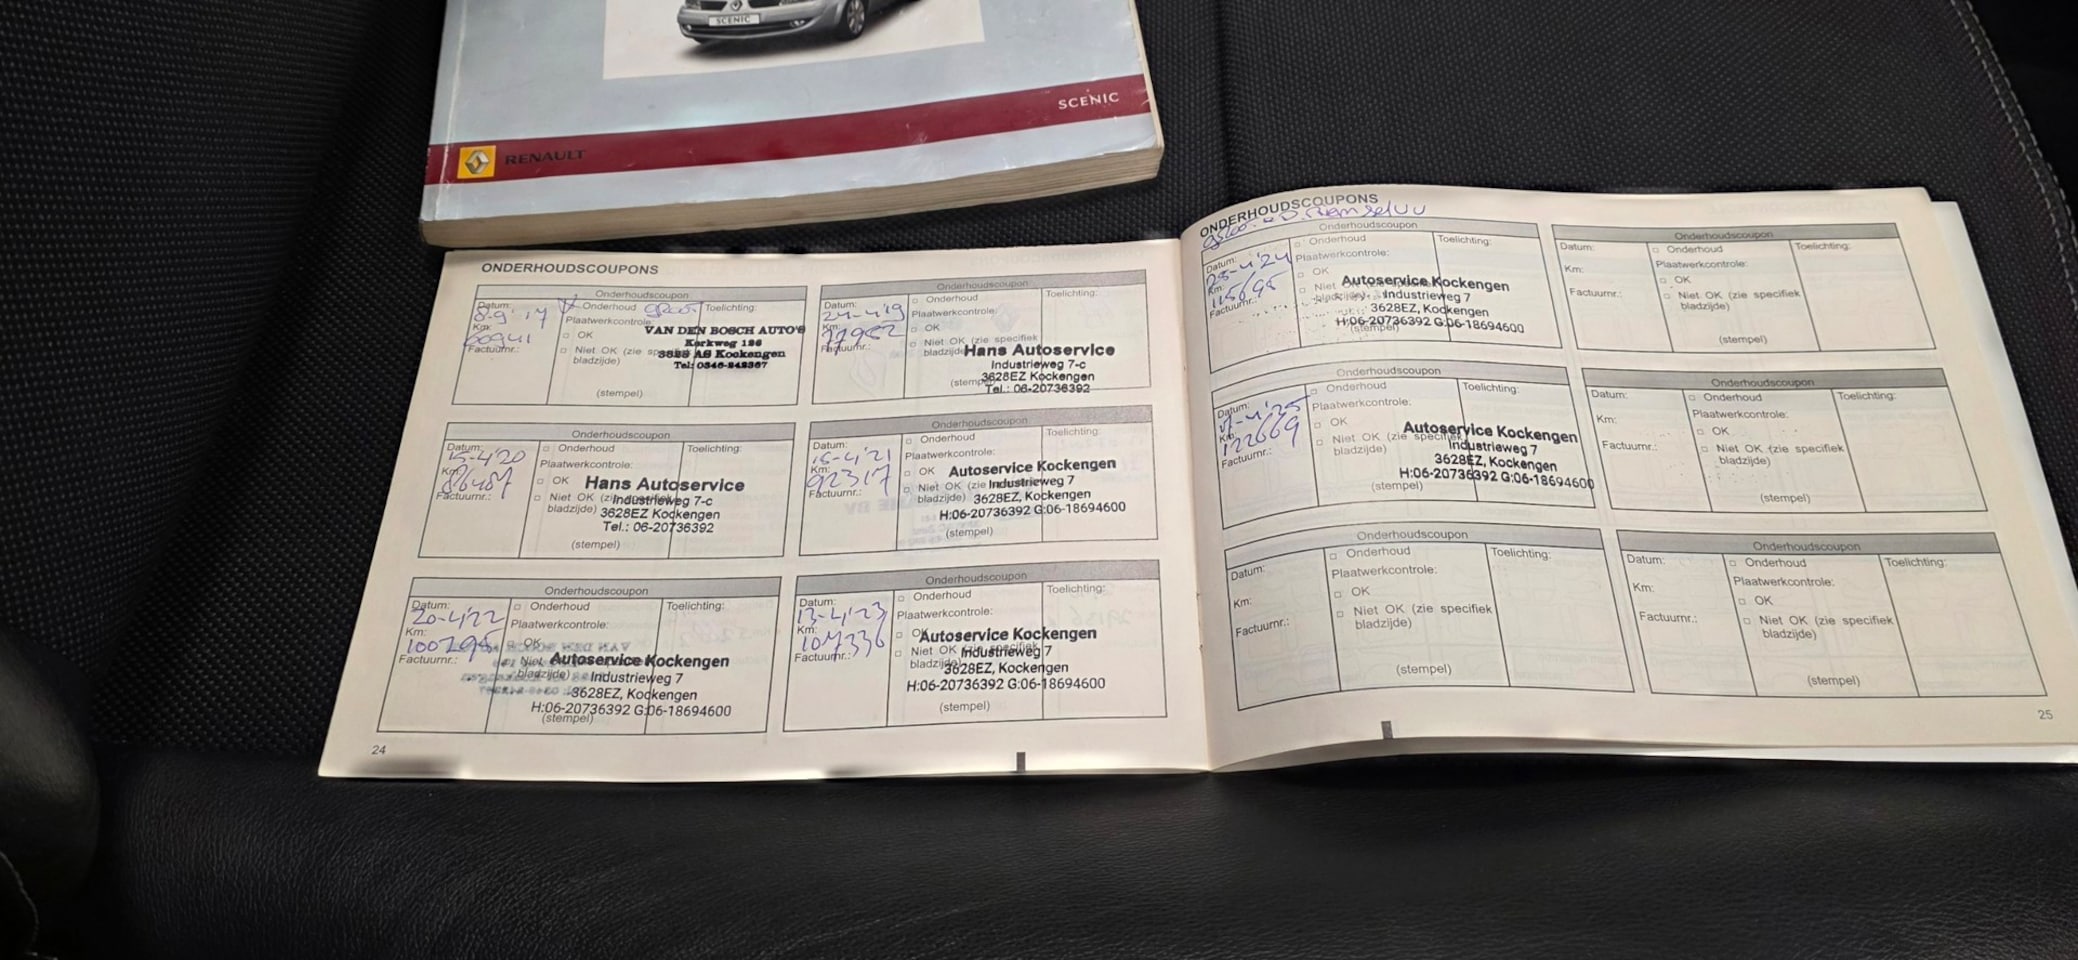 SCENIC
SCENIC
RENAULT
ONDERHOUDSCOUPONS
Onderhoudscoupon
Datum: 8-9-'17
Onderhoud
Toelichting:
Plaatwerkcontrole:
Km: 60941
OK
Factuurnr.:
Niet OK (zie
bladzijde)
VAN DEN BOSCH AUTO'S
Kerkweg 126
3628 AS Kockengen
Tel: 0346-242367
(stempel)
Onderhoudscoupon
Datum: 24-4-'19
Onderhoud
Toelichting:
Plaatwerkcontrole:
Km: 77952
OK
Factuurnr.:
Niet OK (zie specifiek
bladzijde)
Hans Autoservice
Industrieweg 7-c
3628EZ Kockengen
Tel.: 06-20736392
(stempel)
Onderhoudscoupon
Datum: 15-4-'20
Onderhoud
Toelichting:
Plaatwerkcontrole:
Km: 86487
OK
Factuurnr.:
Niet OK (zie specifiek
bladzijde)
Hans Autoservice
Industrieweg 7-c
3628EZ Kockengen
Tel.: 06-20736392
(stempel)
Onderhoudscoupon
Datum: 15-4-'21
Onderhoud
Toelichting:
Plaatwerkcontrole:
Km: 92317
OK
Factuurnr.:
Niet OK (zie
bladzijde)
Autoservice Kockengen
Industrieweg 7
3628EZ, Kockengen
H:06-20736392 G:06-18694600
(stempel)
Onderhoudscoupon
Datum: 20-4-'22
Onderhoud
Toelichting:
Plaatwerkcontrole:
Km: 100295
OK
Factuurnr.:
Niet
bladzijde)
Autoservice Kockengen
Industrieweg 7
3628EZ, Kockengen
H:06-20736392 G:06-18694600
(stempel)
Onderhoudscoupon
Datum: 13-4-'23
Onderhoud
Toelichting:
Plaatwerkcontrole:
Km: 107336
OK
Factuurnr.:
Niet OK (zie specifiek
bladzijde)
Autoservice Kockengen
Industrieweg 7
3628EZ, Kockengen
H:06-20736392 G:06-18694600
(stempel)
24
ONDERHOUDSCOUPONS
Onderhoudscoupon
Datum: 25-4-'24
Onderhoud
Toelichting:
Plaatwerkcontrole:
Km: 115695
OK
Factuurnr.:
Niet OK
bladzijde)
Autoservice Kockengen
Industrieweg 7
3628EZ, Kockengen
H:06-20736392 G:06-18694600
(stempel)
Onderhoudscoupon
Datum:
Onderhoud
Toelichting:
Plaatwerkcontrole:
Km:
OK
Factuurnr.:
Niet OK (zie specifiek
bladzijde)
(stempel)
Onderhoudscoupon
Datum:
Onderhoud
Toelichting:
Plaatwerkcontrole:
Km: 122669
OK
Factuurnr.:
Niet OK (zie specifiek
bladzijde)
Autoservice Kockengen
Industrieweg 7
3628EZ, Kockengen
H:06-20736392 G:06-18694600
(stempel)
Onderhoudscoupon
Datum:
Onderhoud
Toelichting:
Plaatwerkcontrole:
Km:
OK
Factuurnr.:
Niet OK (zie specifiek
bladzijde)
(stempel)
Onderhoudscoupon
Datum:
Onderhoud
Toelichting:
Plaatwerkcontrole:
Km:
OK
Factuurnr.:
Niet OK (zie specifiek
bladzijde)
(stempel)
Onderhoudscoupon
Datum:
Onderhoud
Toelichting:
Plaatwerkcontrole:
Km:
OK
Factuurnr.:
Niet OK (zie specifiek
bladzijde)
(stempel)
25